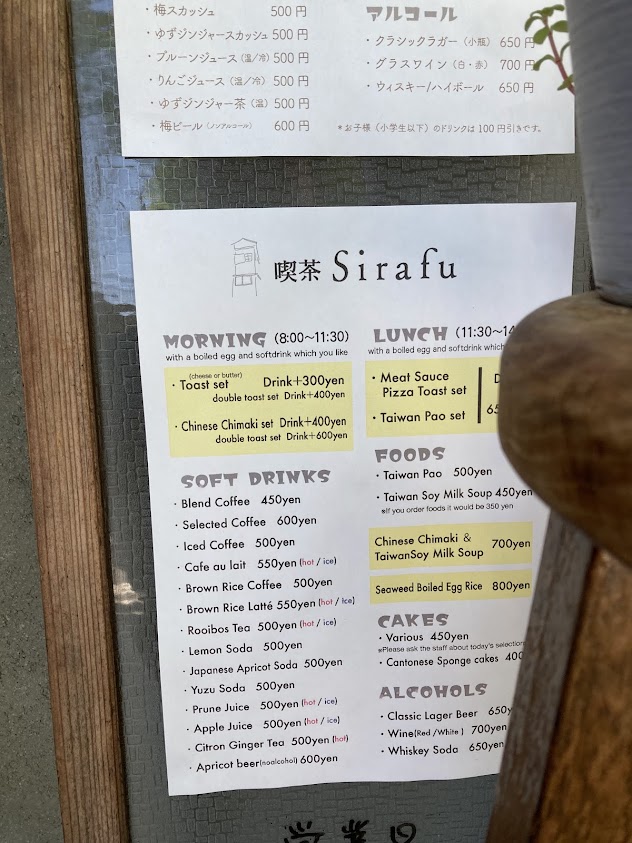 ・梅スカッシュ 500円
・ゆずジンジャースカッシュ 500円
・プルーンジュース（温/冷） 500円
・りんごジュース（温/冷） 500円
・ゆずジンジャー茶（温） 500円
・梅ビール（ノンアルコール） 600円
アルコール
・クラシックラガー（小瓶） 650円
・グラスワイン（白・赤） 700円
・ウィスキー/ハイボール 650円
*お子様（小学生以下）のドリンクは100円引きです。
喫茶 Sirafu
MORNING (8:00〜11:30)
with a boiled egg and softdrink which you like
(cheese or butter)
・Toast set Drink+300yen
double toast set Drink+400yen
・Chinese Chimaki set Drink+400yen
double toast set Drink+600yen
SOFT DRINKS
・Blend Coffee 450yen
・Selected Coffee 600yen
・Iced Coffee 500yen
・Cafe au lait 550yen (hot / ice)
・Brown Rice Coffee 500yen
・Brown Rice Latté 550yen (hot / ice)
・Rooibos Tea 500yen (hot / ice)
・Lemon Soda 500yen
・Japanese Apricot Soda 500yen
・Yuzu Soda 500yen
・Prune Juice 500yen (hot / ice)
・Apple Juice 500yen (hot / ice)
・Citron Ginger Tea 500yen (hot)
・Apricot beer(noalcohol) 600yen
LUNCH (11:30〜14
with a boiled egg and softdrink which
・Meat Sauce
Pizza Toast set
・Taiwan Pao set
D
65
FOODS
・Taiwan Pao 500yen
・Taiwan Soy Milk Soup 450yen
※If you order foods it would be 350 yen
Chinese Chimaki &
TaiwanSoy Milk Soup 700yen
Seaweed Boiled Egg Rice 800yen
CAKES
・Various 450yen
※Please ask the staff about today's selection
・Cantonese Sponge cakes 400
ALCOHOLS
・Classic Lager Beer 650y
・Wine(Red /White ) 700yen
・Whiskey Soda 650yen
営業日